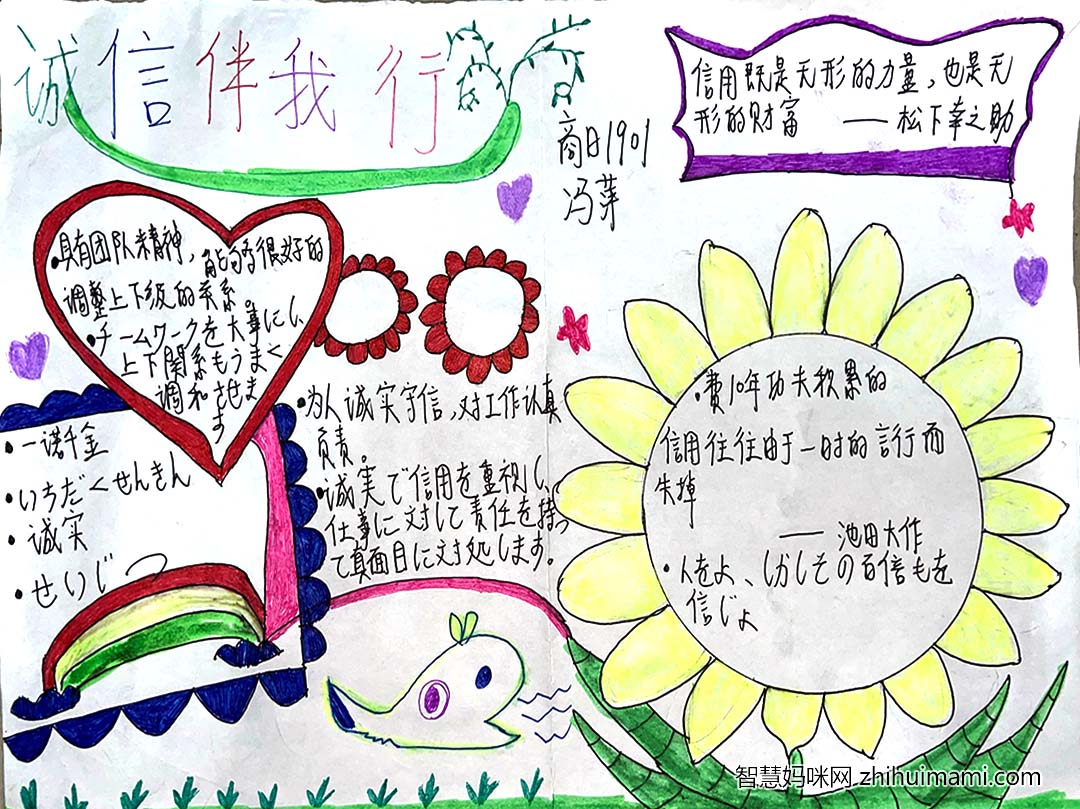 诚信伴我行
商日1901
冯芽
信用既是无形的力量，也是无
形的财富 ——松下幸之助
•具有团队精神，能够很好的
调整上下级的关系。
•チームワークを大事にし
上下関係もうまく
調和させま
す
•一诺千金
•いちだくせんきん
•诚实
•せいじつ
•为人诚实守信，对工作认真
负责。
•诚実で信用を重視し、
仕事に対して責任を持っ
て真面目に対処します。
•费10年功夫积累的
信用往往由于一时的言行而
失掉
——池田大作
•人をよ、しかしその百信もを
信じよ
智慧妈咪网 zhihuimami.com